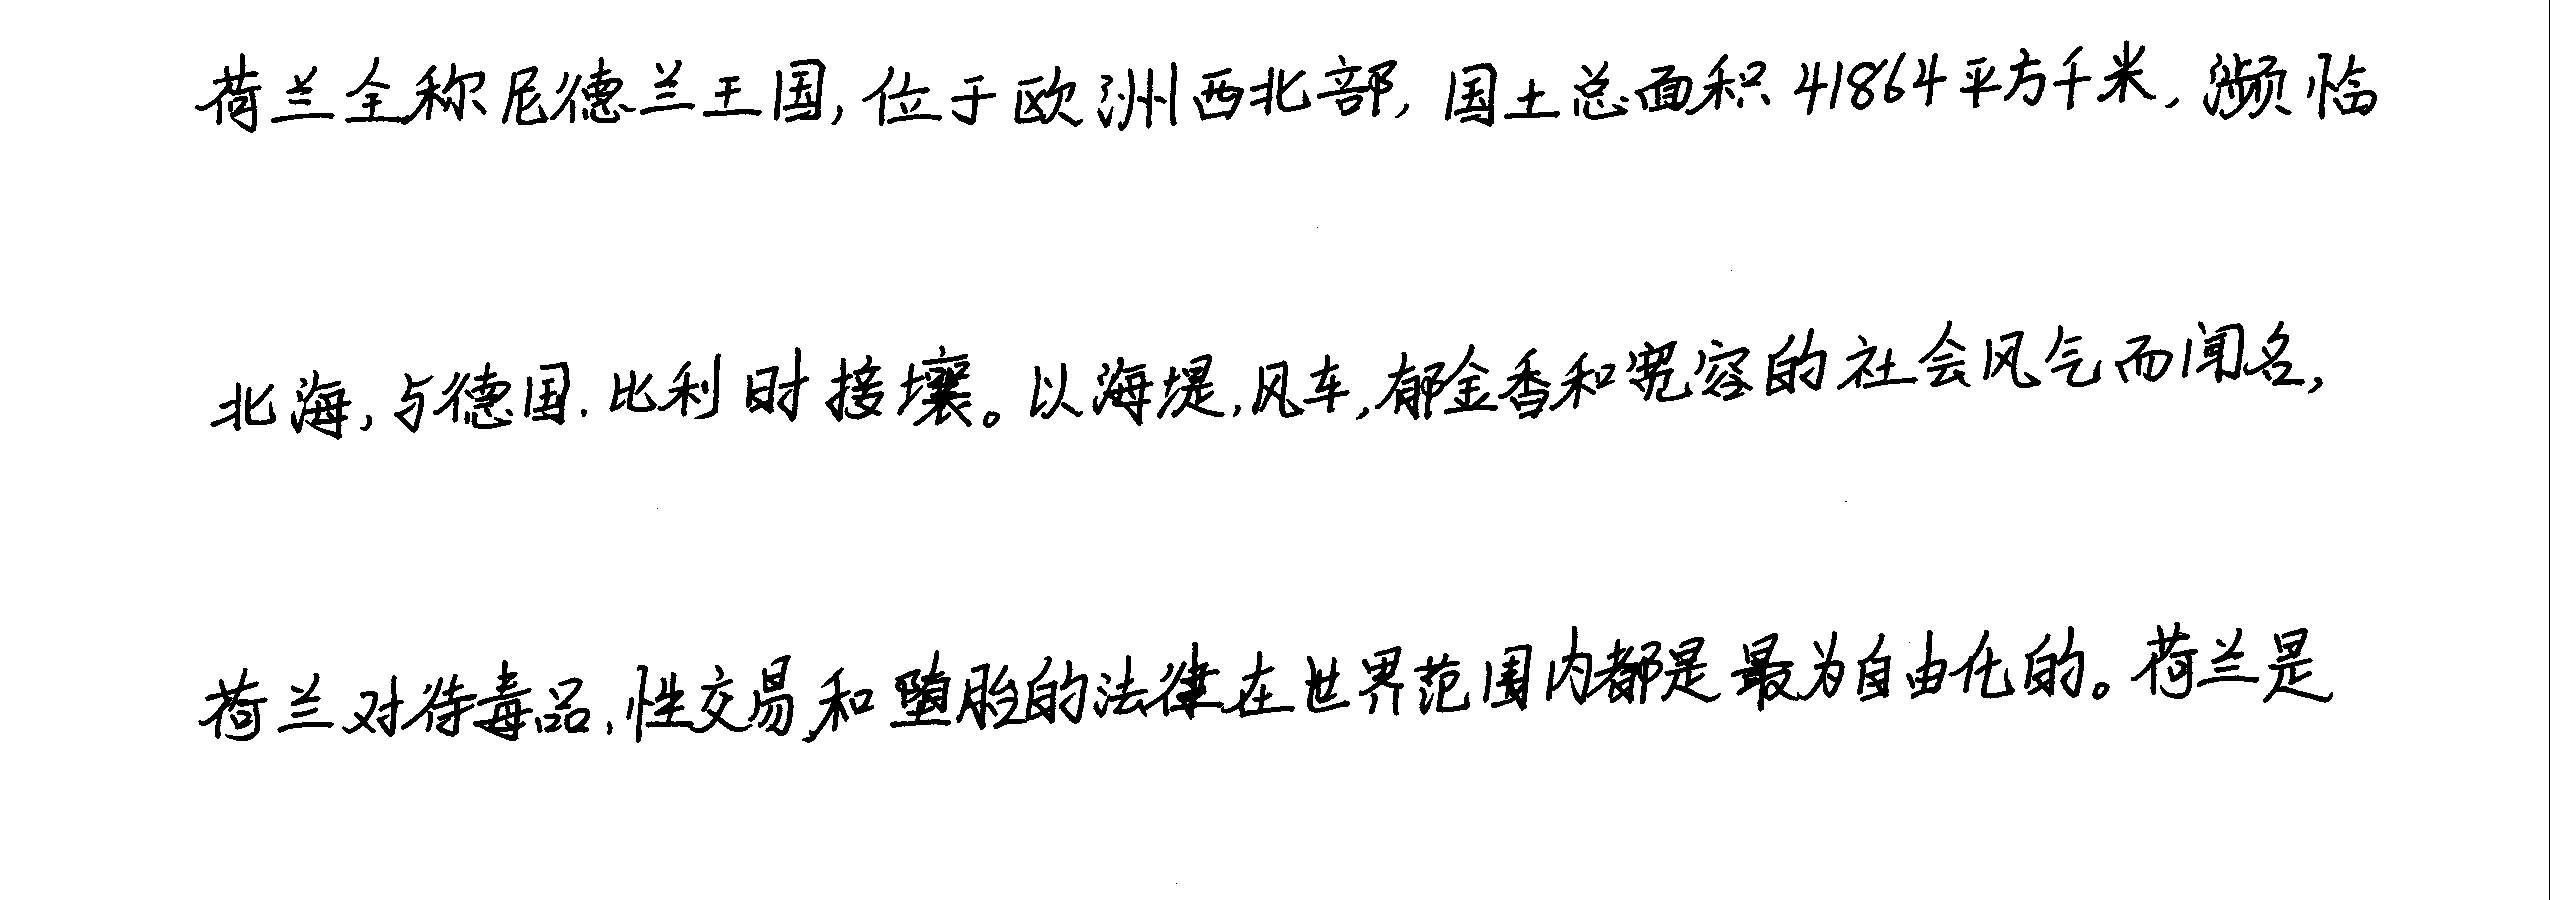 荷兰全称尼德兰王国,位于欧洲西北部,国土总面积41864平方千米,濒临
北海,与德国.比利时接壤。以海堤,风车,郁金香和宽容的社会风气而闻名,
荷兰对待毒品,性交易,和堕胎的法律在世界范围内都是最为自由化的。荷兰是